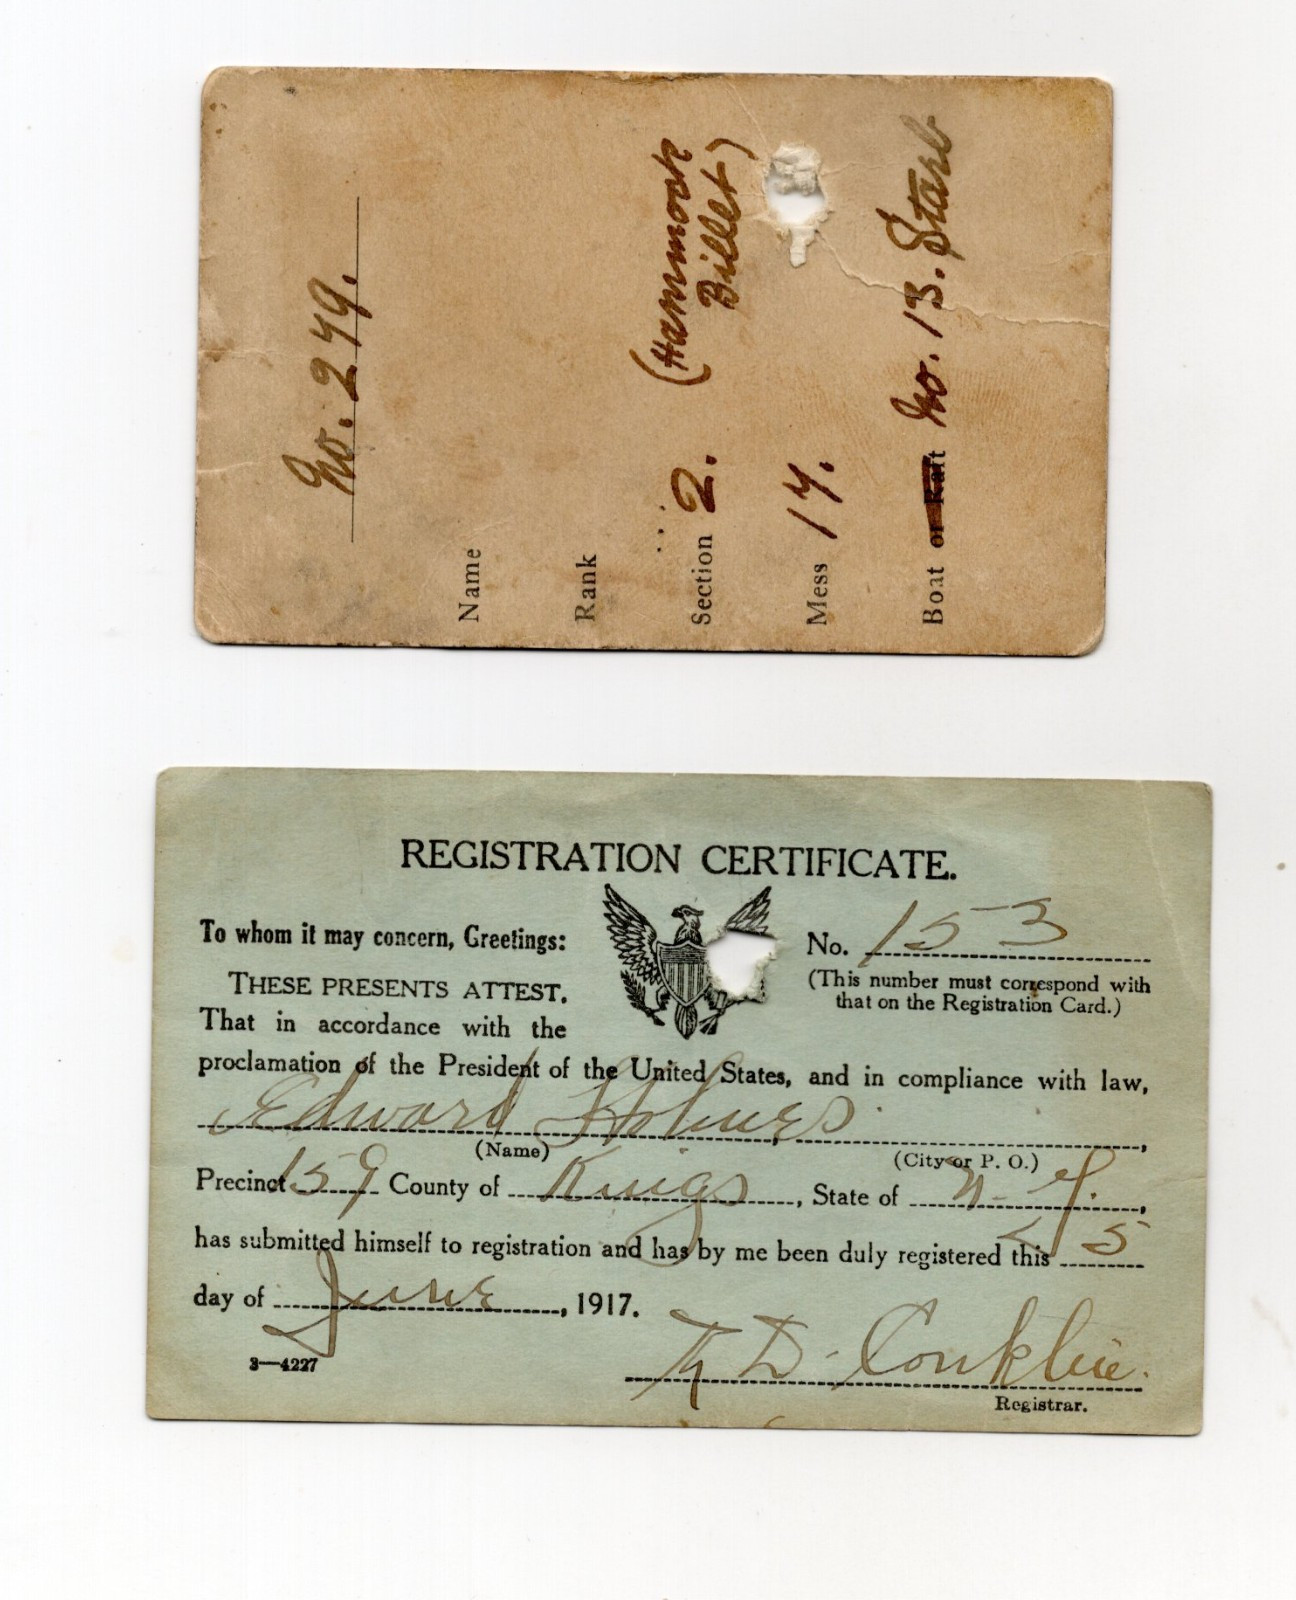 No. 249.
Name
Rank
Section 2. (Hammock
Billet)
Mess 17.
Boat or Raft No. 13. Starb
REGISTRATION CERTIFICATE.
To whom it may concern, Greetings:
No. 153
THESE PRESENTS ATTEST.
(This number must correspond with
that on the Registration Card.)
That in accordance with the
proclamation of the President of the United States, and in compliance with law,
Edward Holmes
(Name) (City or P. O.)
Precinct 159 County of Kings, State of N. Y.,
has submitted himself to registration and has by me been duly registered this 5
day of June, 1917.
3—4227
D. Conklin.
Registrar.